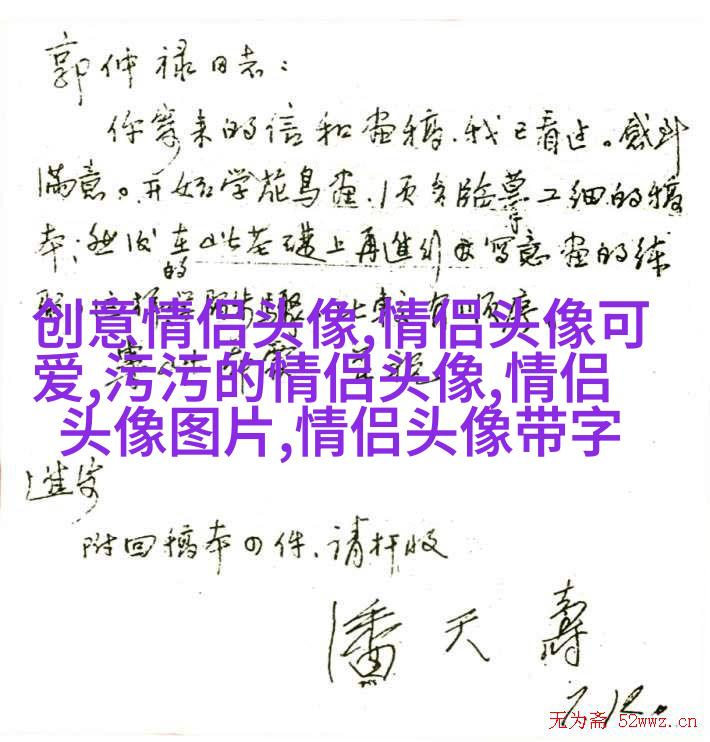 郭仲禄同志：
你寄来的信和画稿，我已看过。感到
满意。开始学花鸟画，须多临摹工细的稿
本；然后在此基础上再进行写意画的练
的
创意情侣头像,情侣头像可
爱,污污的情侣头像,情侣
头像图片,情侣头像带字
进安
附回稿本四件、请检收
潘天寿
7.12.
无为斋 52wwz.cn